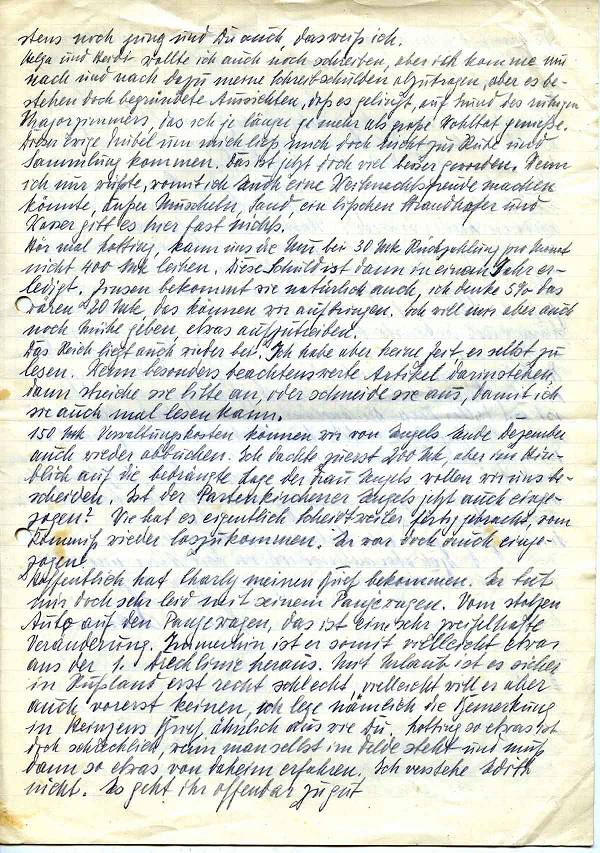 stens noch jung und Du auch, das weiß ich.
Helga und Heidi wollte ich auch noch schreiben, aber ich komme nur
nach und nach dazu meine Schreibschulden abzutragen, aber es be-
stehen doch begründete Aussichten, daß es gelingt, auf Grund des ruhigen
Majorzimmers, das ich je länger je mehr als große Wohltat genieße.
Dieser ewige Trubel um mich ließ mich doch nicht zur Ruhe und
Sammlung kommen. Das ist jetzt doch viel besser geworden. Wenn
ich nur wüßte, womit ich Euch eine Weihnachtsfreude machen
könnte, außer Muscheln, Sand, ein bißchen Strandhafer und
Wasser gibt es hier fast nichts.
Hör mal, kann uns die bei 30 Mk Rückzahlung pro Monat
nicht 400 Mk leihen. Diese Schuld ist dann in einem Jahr er-
ledigt. Zinsen bekommt sie natürlich auch, ich denke 5% das
wären 20 Mk, das können wir aufbringen. Ich will mir aber auch
noch Mühe geben etwas aufzutreiben.
Das Reich liegt auch wieder bei. Ich habe aber keine Zeit es selbst zu
lesen. Wenn besonders beachtenswerte Artikel darinstehen,
dann streiche sie bitte an, oder schneide sie aus, damit ich
sie auch mal lesen kann.
150 Mk Verwaltungskosten können wir von Engels Ende Dezember
auch wieder abziehen. Ich dachte zuerst 200 Mk, aber im Hin-
blick auf die bedrängte Lage der Frau Engels wollen wir uns be-
scheiden. Ist der Partenkirchener Engels jetzt auch einge-
zogen? Wie hat es eigentlich Scheidtweiler fertig gebracht, vom
Kommiß wieder loszukommen. Er war doch auch einge-
zogen!
Hoffentlich hat Charly meinen Brief bekommen. Er tut
mir doch sehr leid mit seinem Panjewagen. Vom stolzen
Auto auf den Panjewagen, das ist eine sehr zweifelhafte
Veränderung. Immerhin ist er somit vielleicht etwas
aus der 1. Drecklinie heraus. Mit Urlaub ist es sicher
in Rußland erst recht schlecht, vielleicht will er aber
auch vorerst keinen, ich lege nämlich die Bemerkung
in Heinzens Brief ähnlich aus wie Du. so etwas ist
doch schrecklich, wenn man selbst im Felde steht und muß
dann so etwas von daheim erfahren. Ich verstehe Edith
nicht. Es geht ihr offenbar zu gut